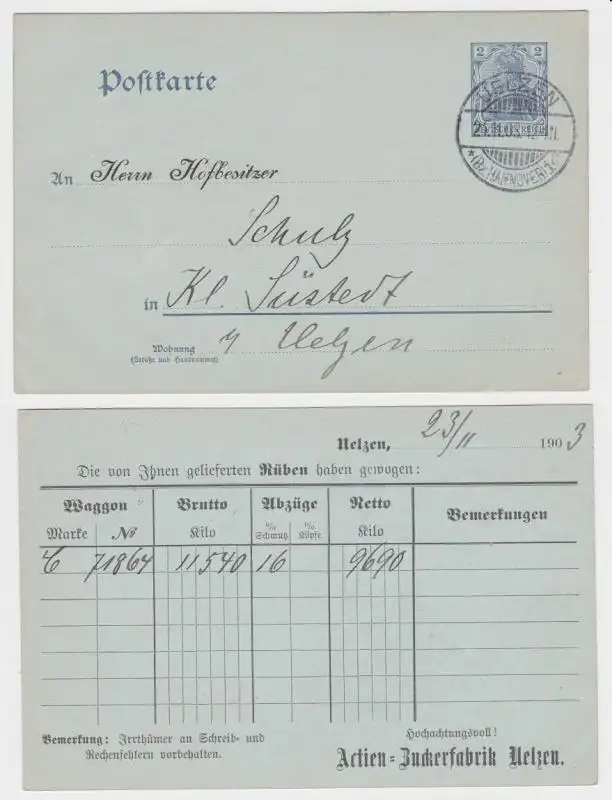 Postkarte
2 2
DEUTSCHES REICH
UELZEN
* (Bz. HANNOVER) 1 c
An Herrn Hofbesitzer
Schulz
in Kl. Süstedt
Wohnung
(Straße und Hausnummer)
Uelzen
Uelzen, 23/11 1903
Die von Ihnen gelieferten Rüben haben gewogen:
Waggon Brutto Abzüge Netto Bemerkungen
Marke № Kilo % Schmutz % Köpfe Kilo
C 71864 11540 16 9690
Bemerkung: Irrthümer an Schreib- und
Rechenfehlern vorbehalten.
Hochachtungsvoll!
Actien-Zuckerfabrik Uelzen.